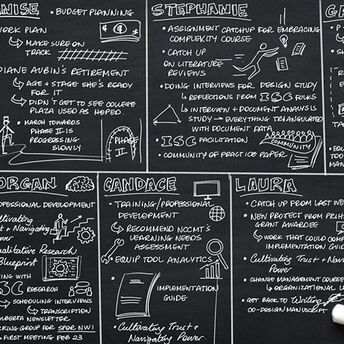 NISE
• BUDGET PLANNING
WORK PLAN
↳ MAKE SURE ON
TRACK
DIANE AUBIN'S RETIREMENT
↳ AGE + STAGE SHE'S READY
FOR IT
↳ DIDN'T GET TO SEE COLLEGE
PLAZA USED AS HOPED.
• MARCH TOWARDS
PHASE II IS
PROGRESSING
SLOWLY
PHASE
II
STEPHANIE
• ASSIGNMENT CATCHUP FOR EMBRACING
COMPLEXITY COURSE
• CATCH UP
ON LITERATURE
REVIEWS
• DOING INTERVIEWS FOR DESIGN STUDY
↳ REFLECTIONS FROM ISC FOLKS
↳ INTERVIEW + DOCUMENT ANALYSIS
STUDY → EVERYTHING TRIANGULATED
WITH DOCUMENT DATA
• ISC FACILITATION
• COMMUNITY OF PRACTICE PAPER
COMMUNITY
G
ORGAN
PROFESSIONAL DEVELOPMENT
Cultivating
Trust + Navigating
Power
Qualitative Research
Blueprint
ING WITH
SC RESEARCH
↳ SCHEDULING INTERVIEWS
↳ TRANSCRIPTION
ALBERTA NEWSLETTER
WORKING GROUP FOR SPOR NWI
↳ FIRST MEETING FEB 23
CANDACE
• TRAINING/PROFESSIONAL
DEVELOPMENT
↳ RECOMMEND NCCMT'S
LEARNING NEEDS
ASSESSMENT
• EQUIP TOOL ANALYTICS
IMPLEMENTATION
GUIDE
• Cultivating Trust +
Navigating Power
LAURA
• CATCH UP FROM LAST WE
• NEW PROJECT FROM PRIH
GRANT AWARDEE
↳ WORK THAT COULD COM
IMPLEMENTATION GUIDE
• Cultivating Trust + Navig
Power
• CHANGE MANAGEMENT COURSE
↳ ORGANIZATIONAL L
• GET BACK TO Writing
CO-DESIGN MANUSCRIPT